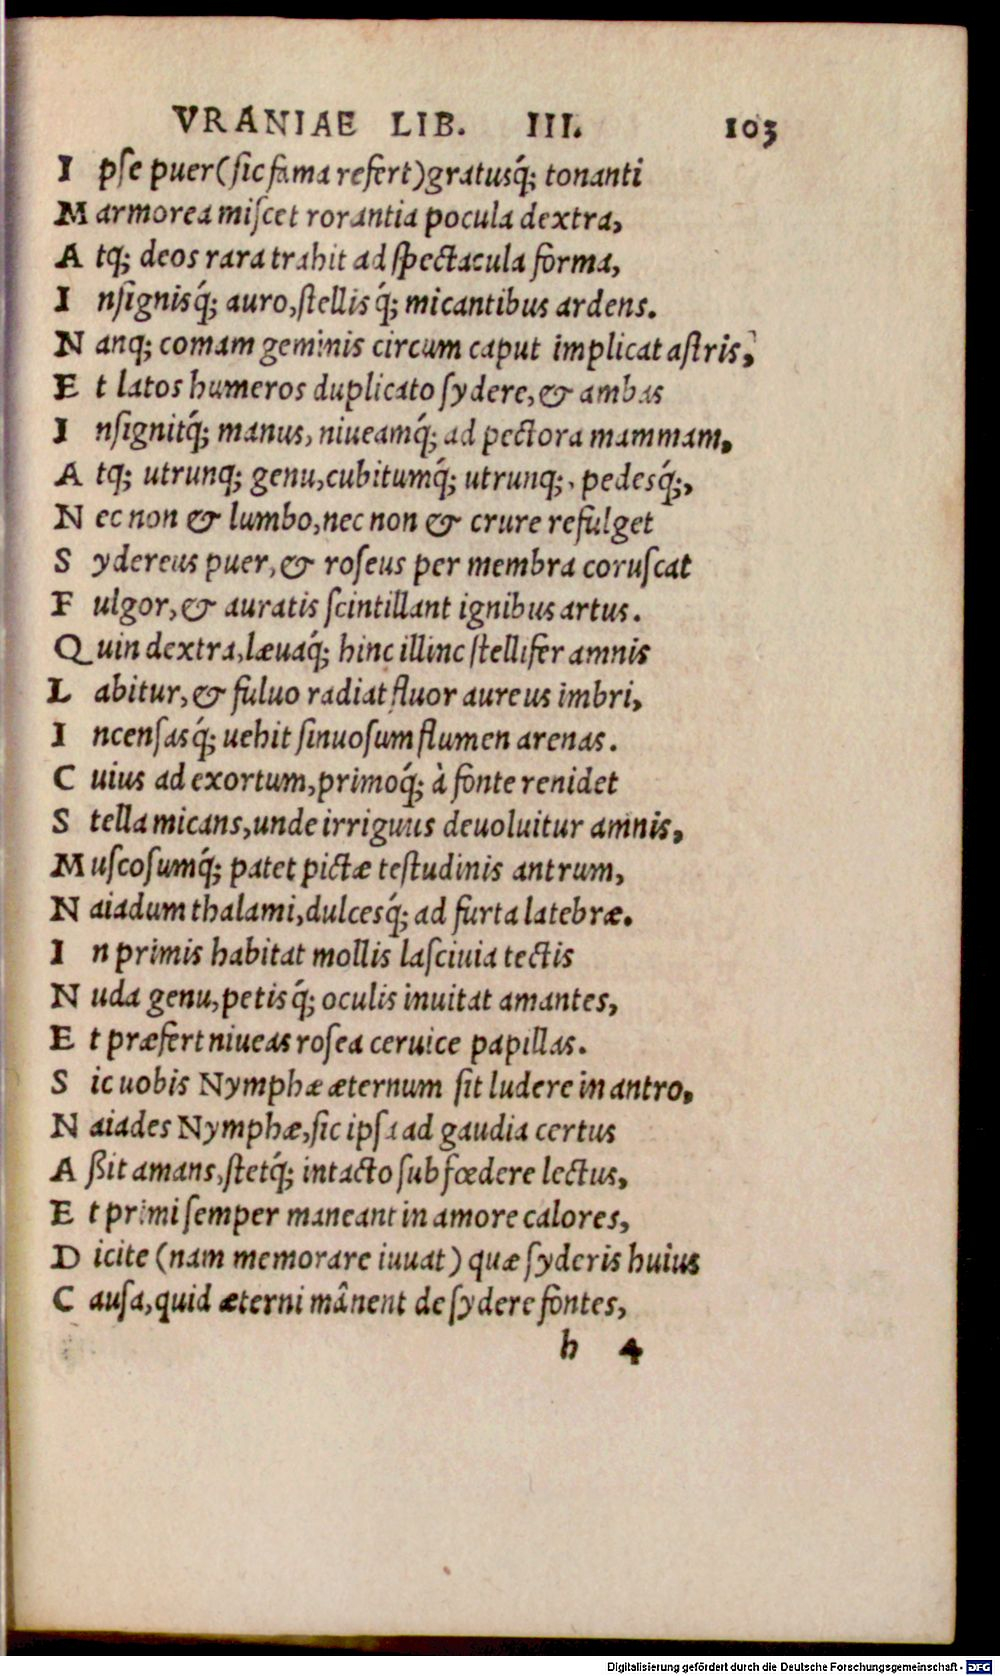 VRANIAE LIB. III. 103
I pse puer (sic fama refert) gratusq́; tonanti
M armorea miscet rorantia pocula dextra,
A tq; deos rara trahit ad spectacula forma,
I nsignisq́; auro, stellisq́; micantibus ardens.
N anq; comam geminis circum caput implicat astris,
E t latos humeros duplicato sydere, & ambas
I nsignitq́; manus, niueamq́; ad pectora mammam,
A tq; utrunq; genu, cubitumq́; utrunq;, pedesq́;,
N ec non & lumbo, nec non & crure refulget
S ydereus puer, & roseus per membra coruscat
F ulgor, & auratis scintillant ignibus artus.
Q uin dextra, læuaq́; hinc illinc stellifer amnis
L abitur, & fuluo radiat fluor aureus imbri,
I ncensasq́; uehit sinuosum flumen arenas.
C uius ad exortum, primoq́; à fonte renidet
S tella micans, unde irriguus deuoluitur amnis,
M uscosumq́; patet pictæ testudinis antrum,
N aiadum thalami, dulcesq́; ad furta latebræ.
I n primis habitat mollis lasciuia tectis
N uda genu, petisq́; oculis inuitat amantes,
E t præfert niueas rosea ceruice papillas.
S ic uobis Nymphæ æternum sit ludere in antro,
N aiades Nymphæ, sic ipsa ad gaudia certus
A ßit amans, stetq́; intacto sub fœdere lectus,
E t primi semper maneant in amore calores,
D icite (nam memorare iuuat) quæ syderis huius
C ausa, quid æterni mânent de sydere fontes,
h 4
Digitalisierung gefördert durch die Deutsche Forschungsgemeinschaft - DFG